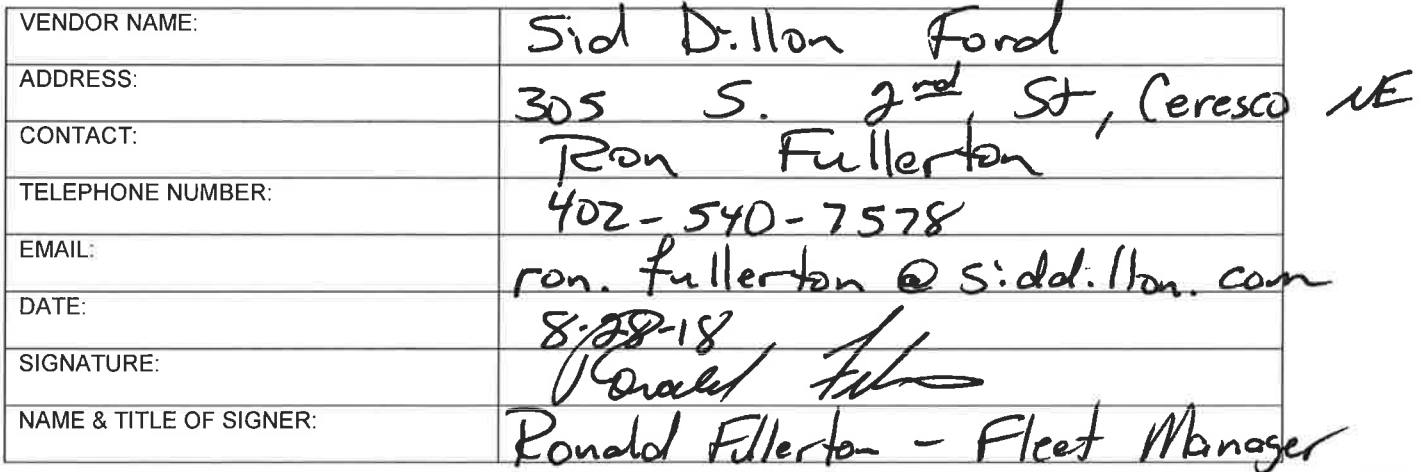 VENDOR NAME: Sid Dillon Ford
ADDRESS: 305 S. 2nd St, Ceresco NE
CONTACT: Ron Fullerton
TELEPHONE NUMBER: 402-540-7578
EMAIL: ron.fullerton@siddillon.com
DATE: 8-28-18
SIGNATURE: Ronald
NAME & TITLE OF SIGNER: Ronald Fullerton - Fleet Manager